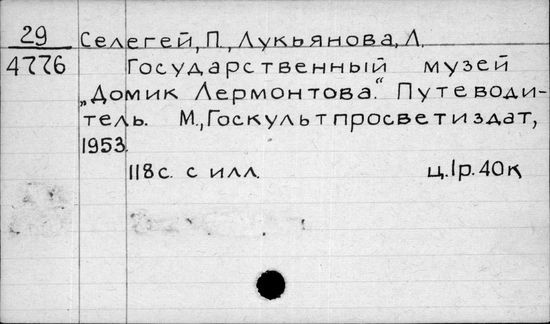 29 Селегей, П., Лукьянова, Л.
4776 Государственный музей
„Домик Лермонтова". Путеводи-
тель. М., Госкультпросветиздат,
1953.
118 с. с илл. ц. 1р. 40к